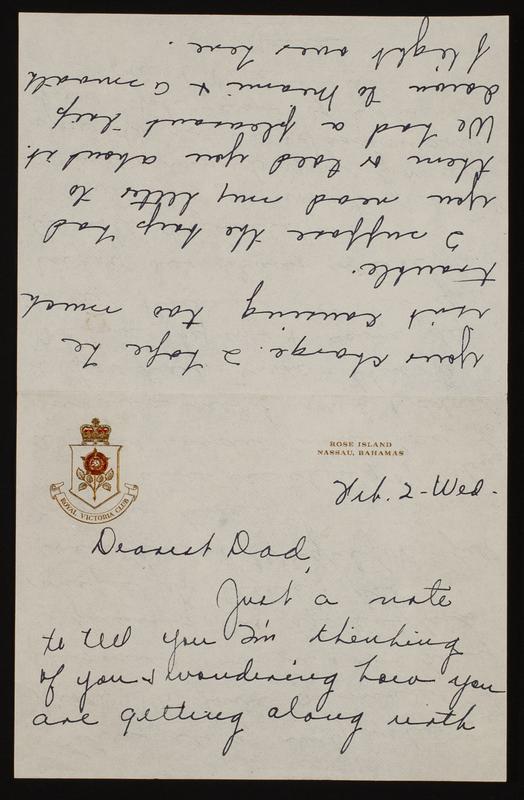 ROYAL VICTORIA CLUB
ROSE ISLAND
NASSAU, BAHAMAS
Feb. 2 - Wed.
Dearest Dad,
Just a note
to tell you I'm thinking
of you & wondering how you
are getting along with
your charge. I hope he
isn't causing too much
trouble.
I suppose the boys had
you read my letter to
them or told you about it.
We had a pleasant trip
down to Miami & a smooth
flight over here.